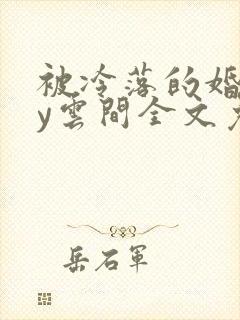 被冷落的婚
y雲間全文
岳石軍